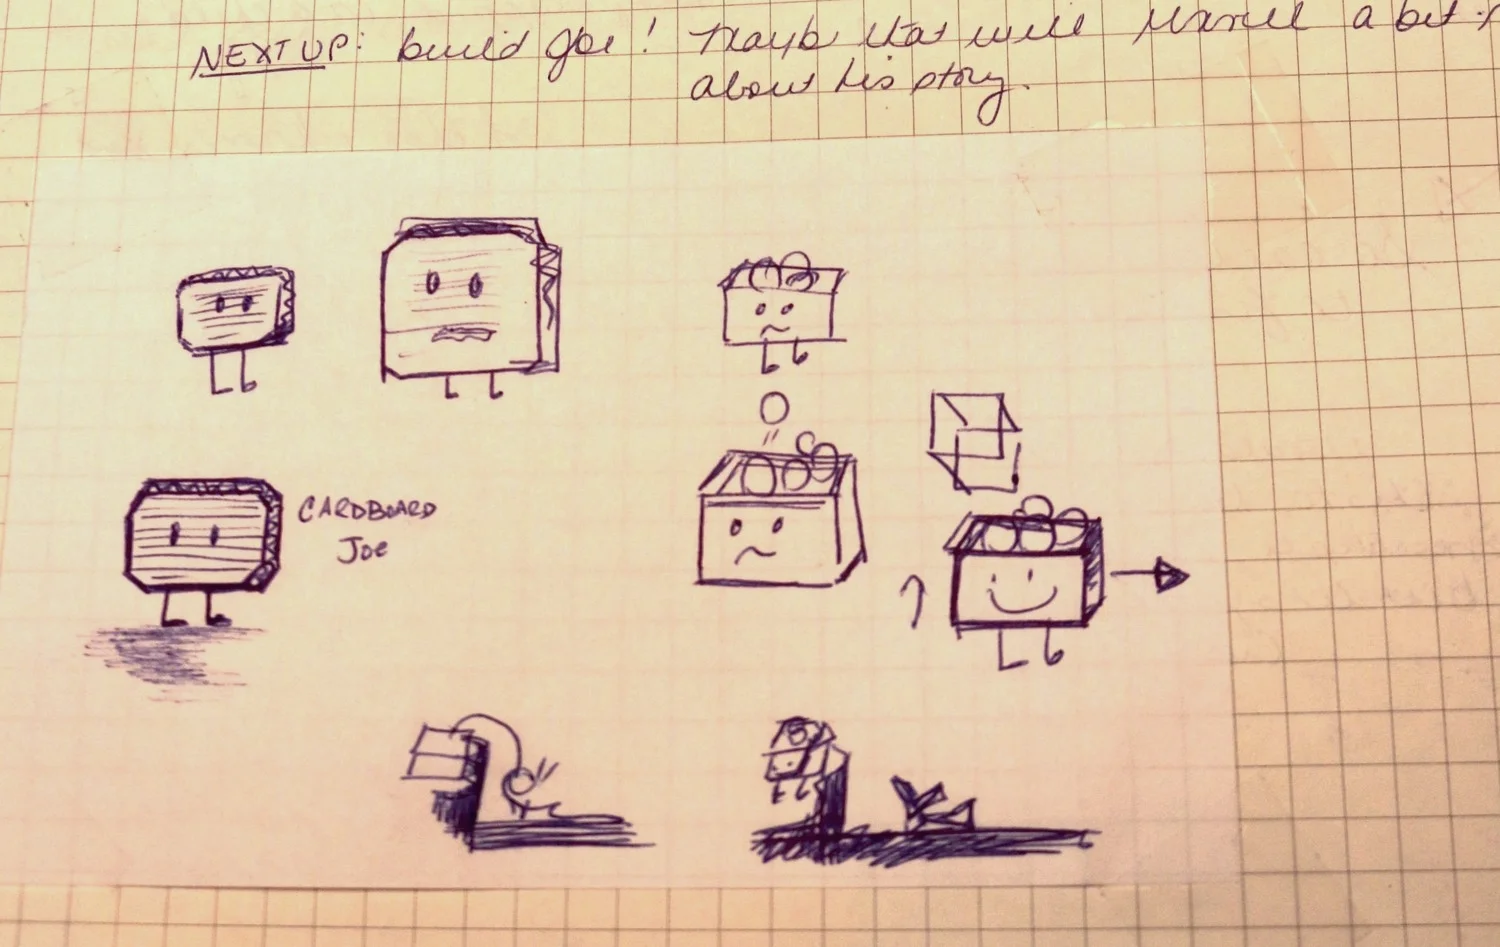 NEXT UP: build Joe! Mayb that will reveal a bit
about his story.
CARDBOARD
Joe